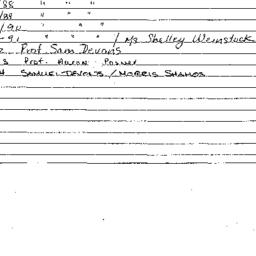 /88 " " "
/89 " " "
/90 " " " "
-91 " " " / Ms Shelley Weinstock
2 Prof. Sam Devons
3 Prof. Aaron Posner
4 SAMUEL DEVONS / MORRIS SHAMOS